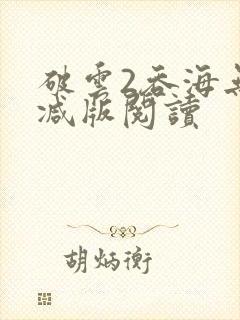 破雲2吞海無
減版閱讀
胡炳衡